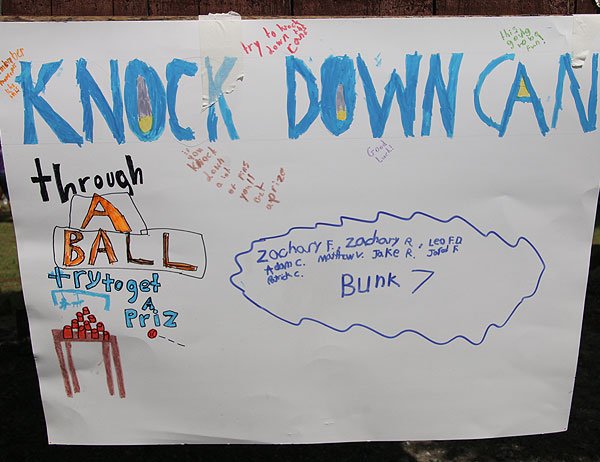 try to knock
down the
cans
this is
going
to be
fun!
KNOCK DOWN CAN
Good
Luck!
if you
knock
down
a lot
of pins
you'll
Get
a prize
through
A
BALL
try to get
A
Priz
Zachary F., Zachary R., Leo F.D
Adam C. Matthew V. Jake R. Jared F
Patrick C.
Bunk 7